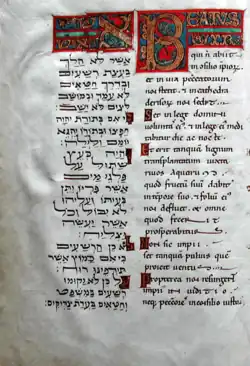 אשר לא הלך
בעצת רשעים
ובדרך חטאים
לא עמד ובמושב
לצים לא ישב
כי אם בתורת יהוה
חפצו ובתורתו יהגה
יומם ולילה
והיה כעץ
שתול על
פלגי מים
אשר פריו יתן
בעתו ועלהו
לא יבול וכל
אשר יעשה
יצליח
לא כן הרשעים
כי אם כמוץ אשר
תדפנו רוח
על כן לא יקומו
רשעים במשפט
וחטאים בעדת צדיקים
BEATUS
qui n̄ abiit
in consilio impiorū
et in via peccatorum
nos stetit et in cathedra
derisorū nos sedit
Set in lege domini
voluntas ei et in lege ei medi
tabitur die ac nocte
Et erit tanquā lignum
transplantatum iuxta
rivos aquarū
quod fructū suū dabit
in tempore suo et foliū ei
nos defluet et omne
quod fecerit
prosperabitur
Non sic impii
set tanquā pulvis quē
proicit ventus
Propterea nos resurgent
impii in iuditio
neq; peccatores in consilio iustorū